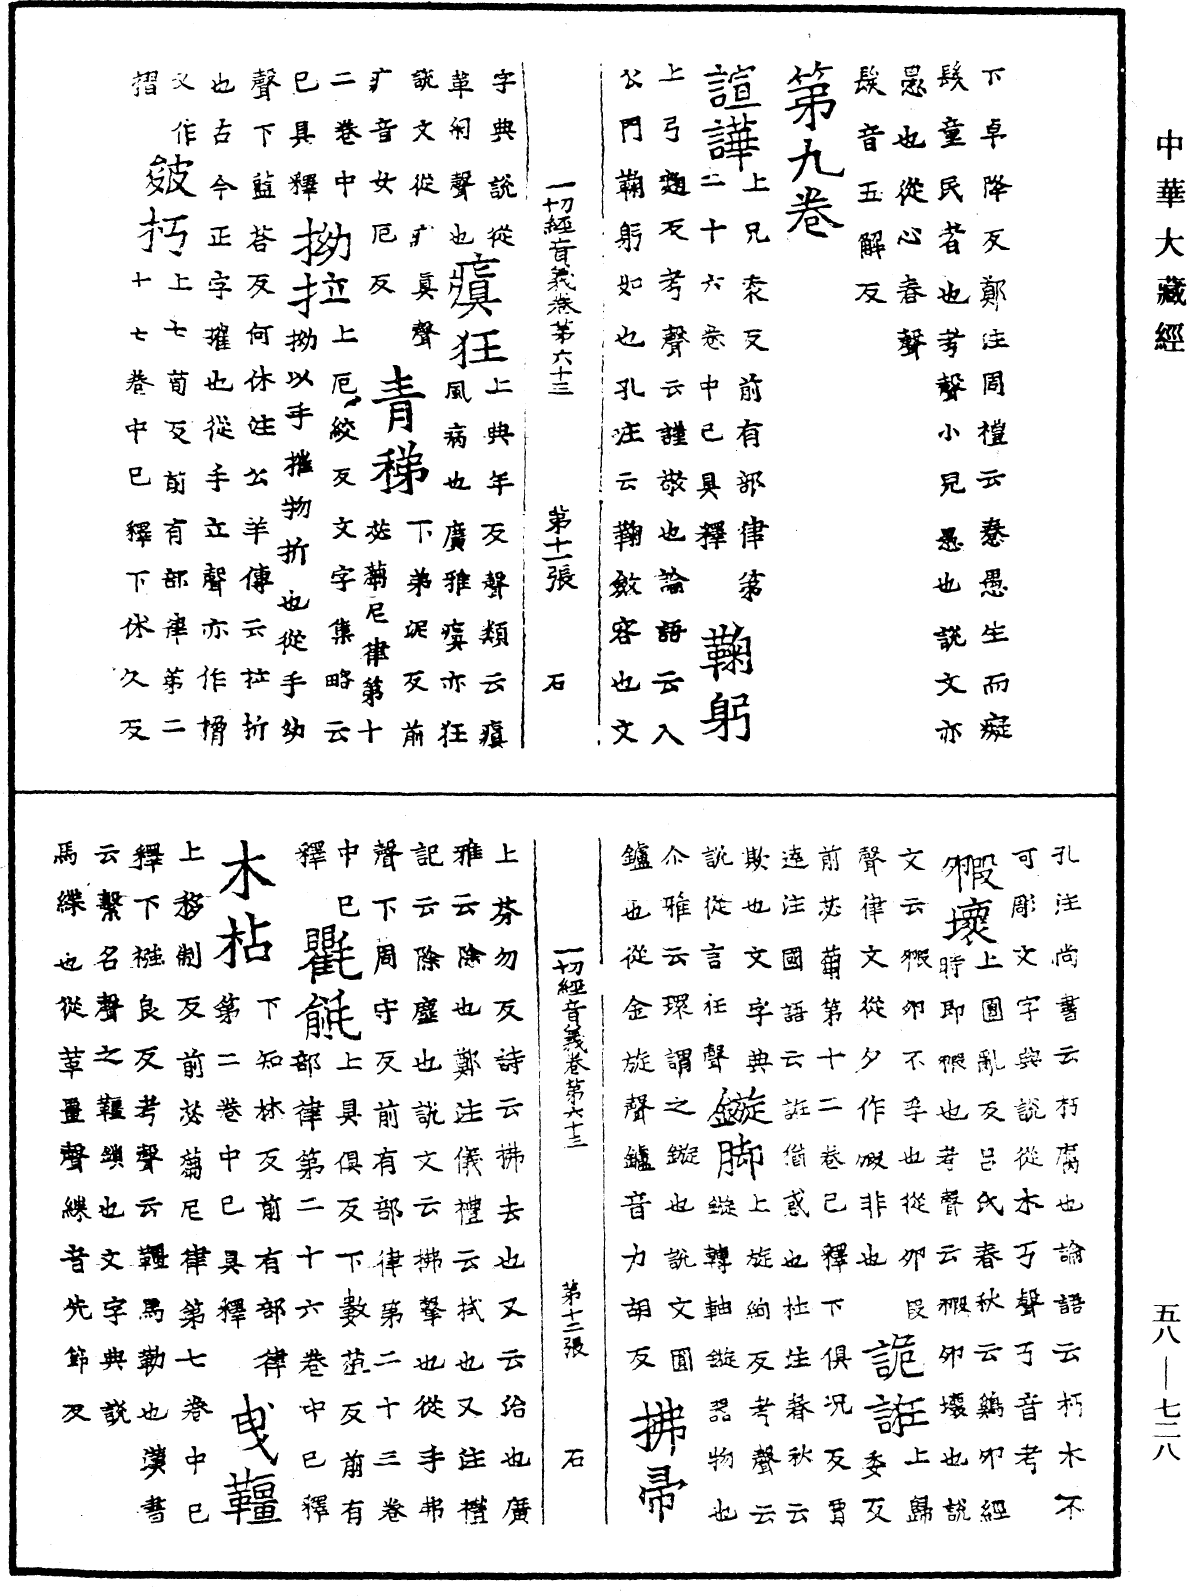 中華大藏經
下卓降反鄭注周禮云憃愚生而癡
騃童民者也考聲小兒愚也說文亦
愚也從心春聲
騃音五解反
第九卷
諠譁上兄袁反前有部律第
二十六卷中已具釋
鞠躬
上弓麴反考聲云謹敬也論語云入
公門鞠躬如也孔注云鞠斂容也文
一切經音義卷第六十三 第十一張 石
字典說從
革匊聲也
瘨狂上典年反聲類云瘨
風病也廣雅瘨亦狂
說文從疒真聲
疒音女厄反
青稊下弟泥反前
苾蒭尼律第十
二卷中
已具釋
拗拉上厄絞反文字集略云
拗以手摧物折也從手幼
聲下藍荅反何休注公羊傳云拉折
也古今正字摧也從手立聲亦作摺
又作
摺
皴朽上七荀反前有部律第二
十七卷中已釋下休久反
孔注尚書云朽腐也論語云朽木不
可彫文字典說從木丂聲丂音考
毈壞上團亂反呂氏春秋云鷄卵經
時即毈也考聲云毈卵壞也說
文云毈卵不孚也從卵段
聲律文從夕作毈非也
詭誑上歸
委反
前苾蒭第十二卷已釋下俱況反賈
逵注國語云誑僭惑也杜注春秋云
欺也文字典
說從言狂聲
鏇脚上旋絢反考聲云
鏇轉軸鏇器物也
尒雅云環謂之鏇也說文圓
鑪也從金旋聲鑪音力胡反
拂帚
一切經音義卷第六十三 第十二張 石
上芬勿反詩云拂去也又云治也廣
雅云除也鄭注儀禮云拭也又注禮
記云除塵也說文云拂擊也從手弗
聲下周守反前有部律第二十三卷
中已
釋
氍毹上具俱反下數蒭反前有
部律第二十六卷中已釋
木枮下知林反前有部律
第二卷中已具釋
曳韁
上移制反前苾蒭尼律第七卷中已
釋下襁良反考聲云韁馬勒也漢書
云繫名聲之韁鎖也文字典說
馬緤也從革畺聲緤音先節反
五八—七二八